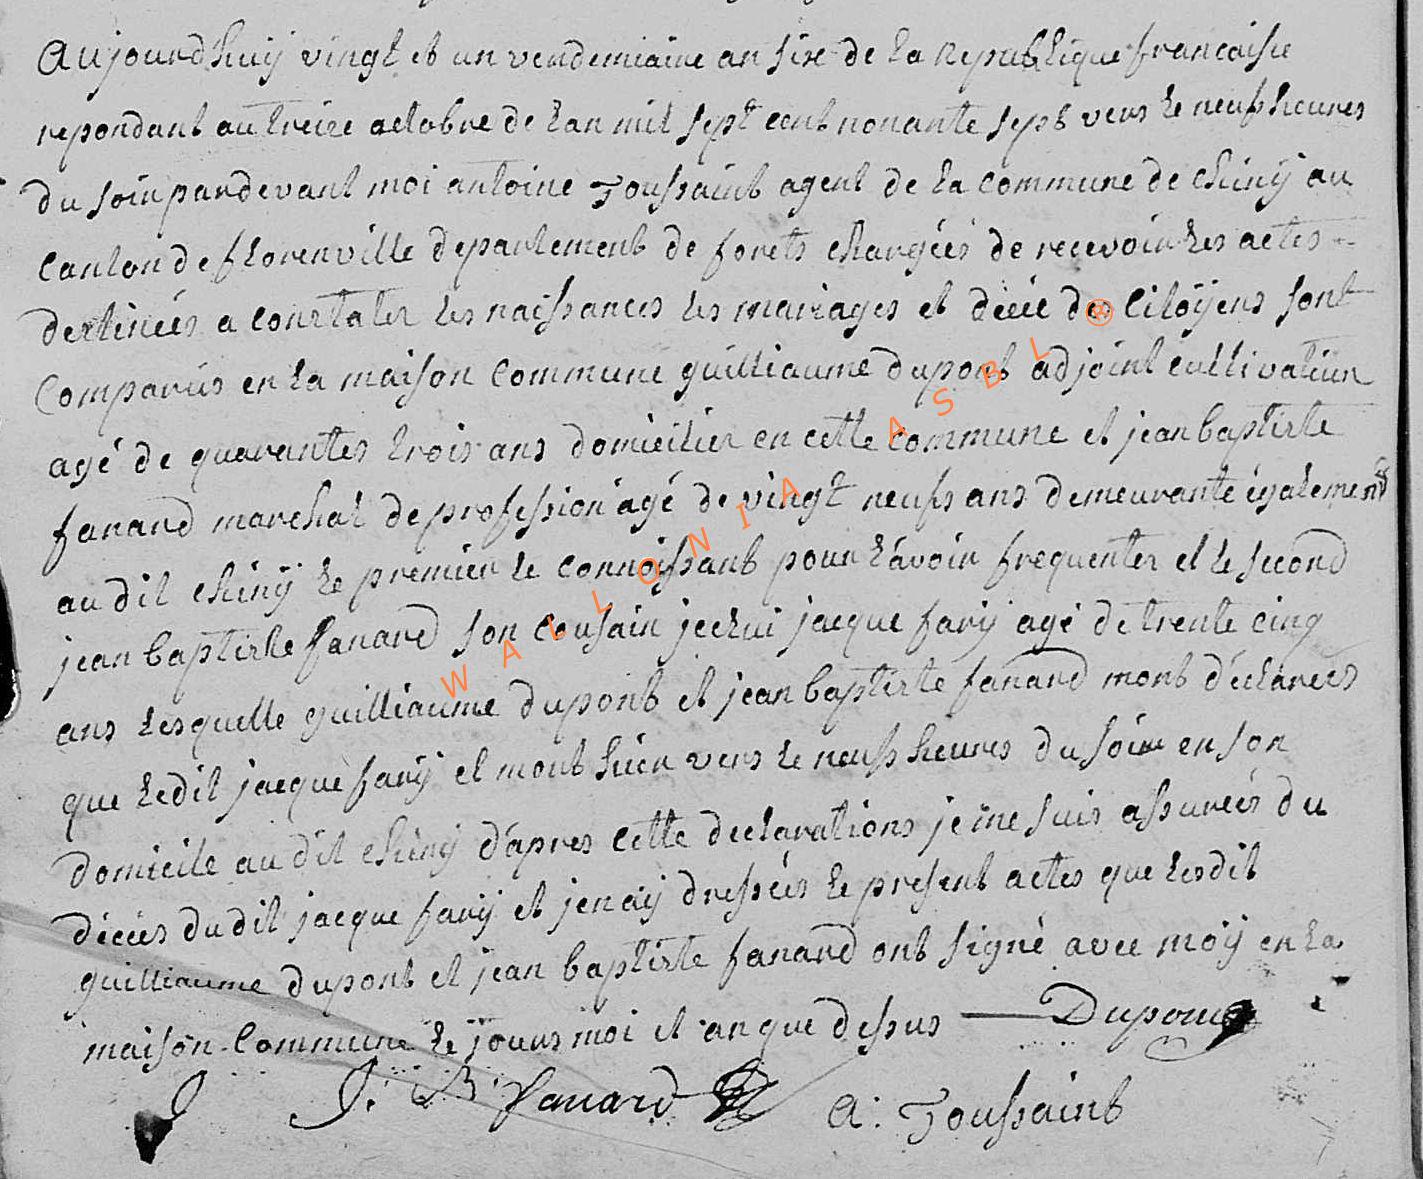 aujourdhuij vingt et un vendemiaire an six de la republique francaise
repondant au treize actobre de lan mil sept cent nonante sept vers le neufs heures
du soir pardevant moi antoine Toussaint agent de la commune de chinij au
canton de florenville departement de forets chargées de recevoir les actes
destinées a constater les naissances les mariages et décée des Citoÿens sont
Comparus en la maison Commune guilliaume dupont adjoint cultivateur
agé de quarantes trois ans domicilier en cette commune et jean baptiste
fanard marchal de profession agé de vingt neufs ans demeurante également
au dit chinij le premier le connoissant pour lavoir frequenter et le second
jean baptiste fanard son cousain jcelui jacque farij agé de trente cinq
ans lesquelle guilliaume dupont et jean baptiste fanard mont déclarees
que ledit jacque farij et mort hier vers le neufs heures du soir en son
domicile au dit chinij dapres cette declarations je me suis assurées du
décées du dit jacque farij et jen aij dressées le present actes que lesdit
guilliaume dupont et jean baptiste fanard ont signé avec moÿ en la
maison Commune le jours moi et an que dessus Dupont
J. B. fanard a: Toussaint
WALLONIA ASBL ®